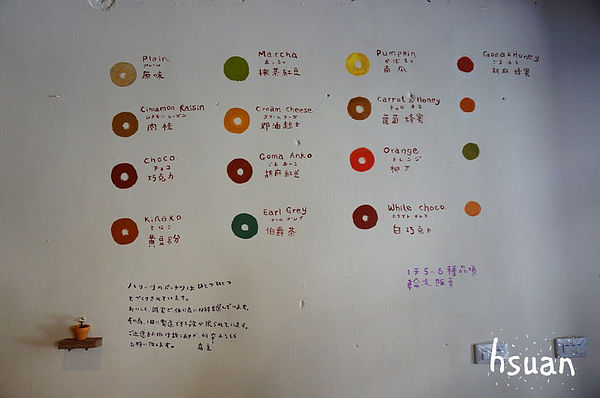 Plain
プレーン
原味
Maccha
まっちゃ
抹茶紅豆
Pumpkin
かぼちゃ
南瓜
Goma & Honey
ごま はち
胡麻 蜂蜜
Cinnamon Raisin
シナモン レーズン
肉桂
Cream Cheese
クリームチーズ
奶油起士
Carrot & Honey
蘿蔔 蜂蜜
Choco.
チョコ
巧克力
Goma Anko
ごま あんこ
胡麻紅豆
Orange
オレンジ
柳丁
Kinako
きなこ
黃豆粉
Earl Grey
アール グレイ
伯爵茶
White choco.
ホワイト チョコ
白巧克力
1天5~6種品項
輪流販賣
ハリーツのドーナツは ひとつ ひとつ
てづくりされています。
お願い致します。 店主
hsuan